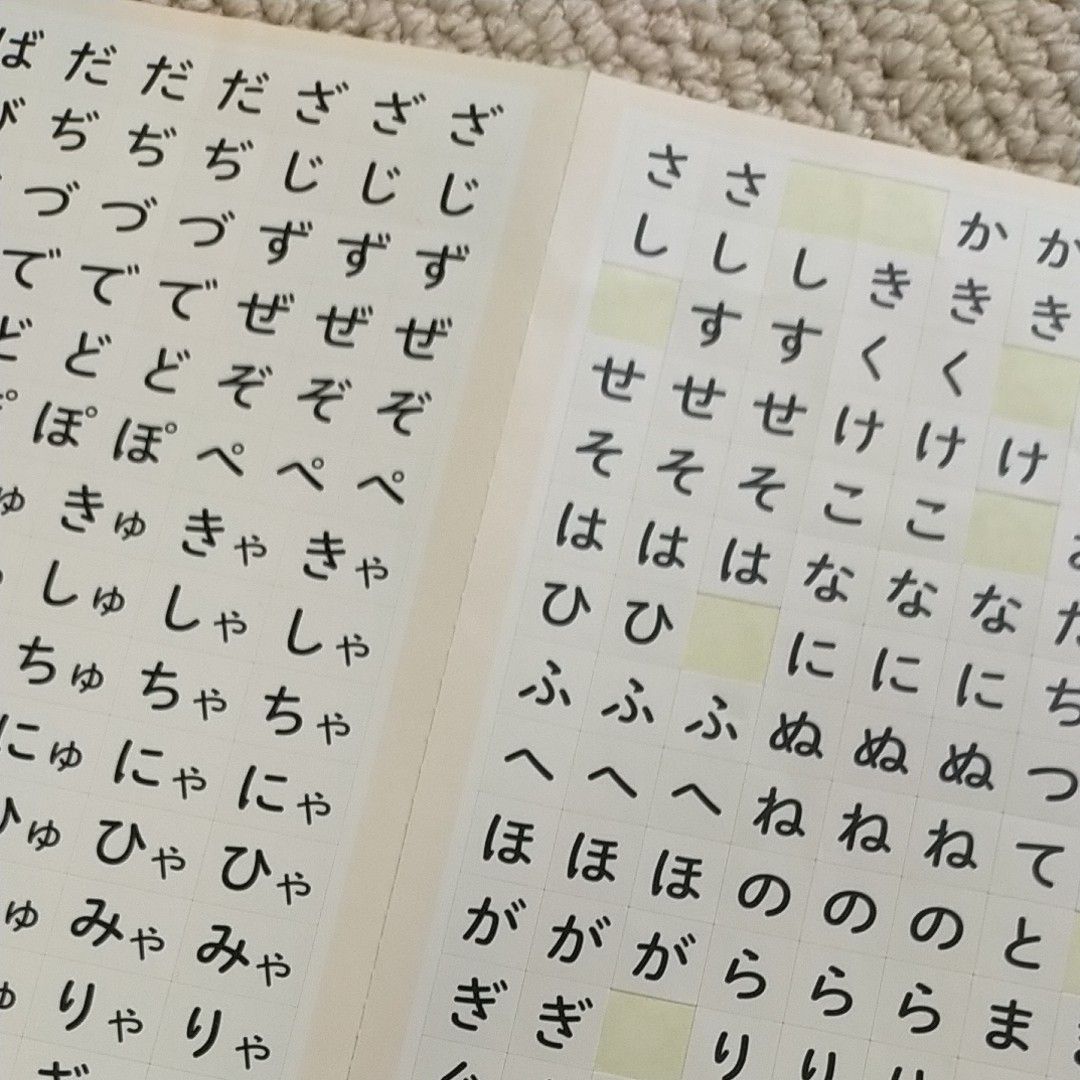 ば だ だ だ ざ ざ ざ
ぢ ぢ ぢ じ じ じ
づ づ づ ず ず ず
で で で ぜ ぜ ぜ
ど ど ど ぞ ぞ ぞ
ぽ ぽ ぺ ぺ ぺ
ゅ きゅ きゃ きゃ
しゅ しゃ しゃ
ちゅ ちゃ ちゃ
にゅ にゃ にゃ
ひゅ ひゃ ひゃ
ゅ みゃ みゃ
ゅ りゃ りゃ
さ さ か か
し し し き き き
す す く く
せ せ せ け け け
そ そ そ こ こ
は は は な な な た
ひ ひ に に に ち
ふ ふ ふ ぬ ぬ ぬ つ
へ へ へ ね ね ね て
ほ ほ ほ の の の と
が が が ら ら ら ま
ぎ ぎ り り り